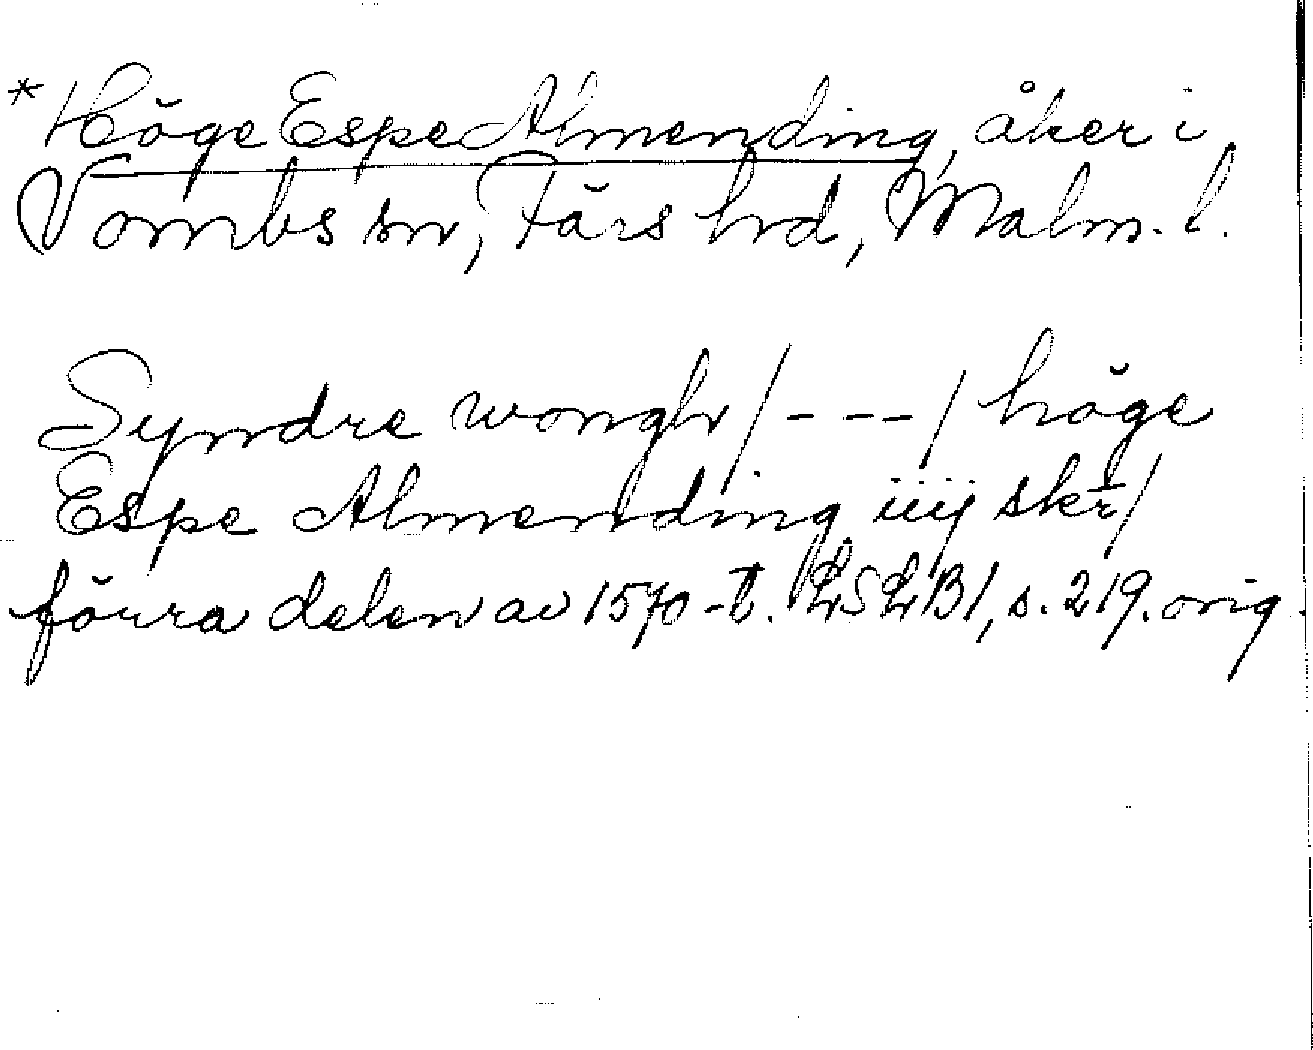 *Höge Espe Almending, åker i
Vombs sn, Färs hrd, Malm. l.
Syndre wongh/---/ höge
Espe Almending iiij skr̄/
förra delen av 1570-t. LSLB1, s. 219. orig.